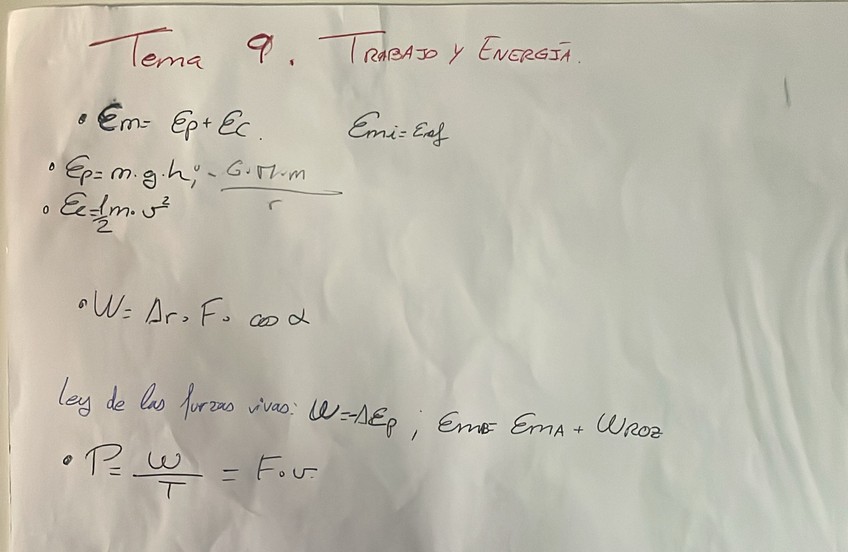 Tema 9. TRABAJO Y ENERGÍA.
• Em= Ep+Ec. Emi=Emf
• Ep=m.g.h; - G.M.m/r
• Ec=1/2 m. v²
• W= Δr. F. cos α
Ley de las furzas vivas: W=-ΔEp ; EmB= EmA + WROZ
• P= W/T = F.v.